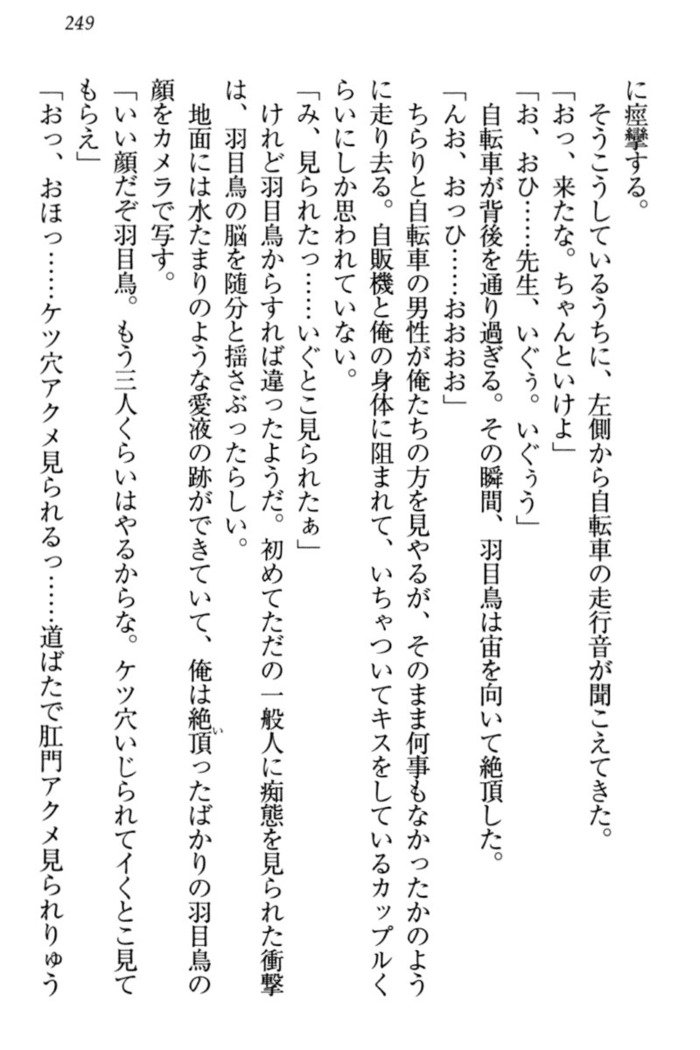 249
に痙攣する。
そうこうしているうちに、左側から自転車の走行音が聞こえてきた。
「おっ、来たな。ちゃんといけよ」
「お、おひ……先生、いぐぅ。いぐぅう」
自転車が背後を通り過ぎる。その瞬間、羽目鳥は宙を向いて絶頂した。
「んお、おっひ……おおおお」
ちらりと自転車の男性が俺たちの方を見やるが、そのまま何事もなかったかのよう
に走り去る。自販機と俺の身体に阻まれて、いちゃついてキスをしているカップルく
らいにしか思われていない。
「み、見られたっ……いぐとこ見られたぁ」
けれど羽目鳥からすれば違ったようだ。初めてただの一般人に痴態を見られた衝撃
は、羽目鳥の脳を随分と揺さぶったらしい。
地面には水たまりのような愛液の跡ができていて、俺は絶頂ったばかりの羽目鳥の
い
顔をカメラで写す。
「いい顔だぞ羽目鳥。もう三人くらいはやるからな。ケツ穴いじられてイくとこ見て
もらえ」
「おっ、おほっ……ケツ穴アクメ見られるっ……道ばたで肛門アクメ見られりゅう